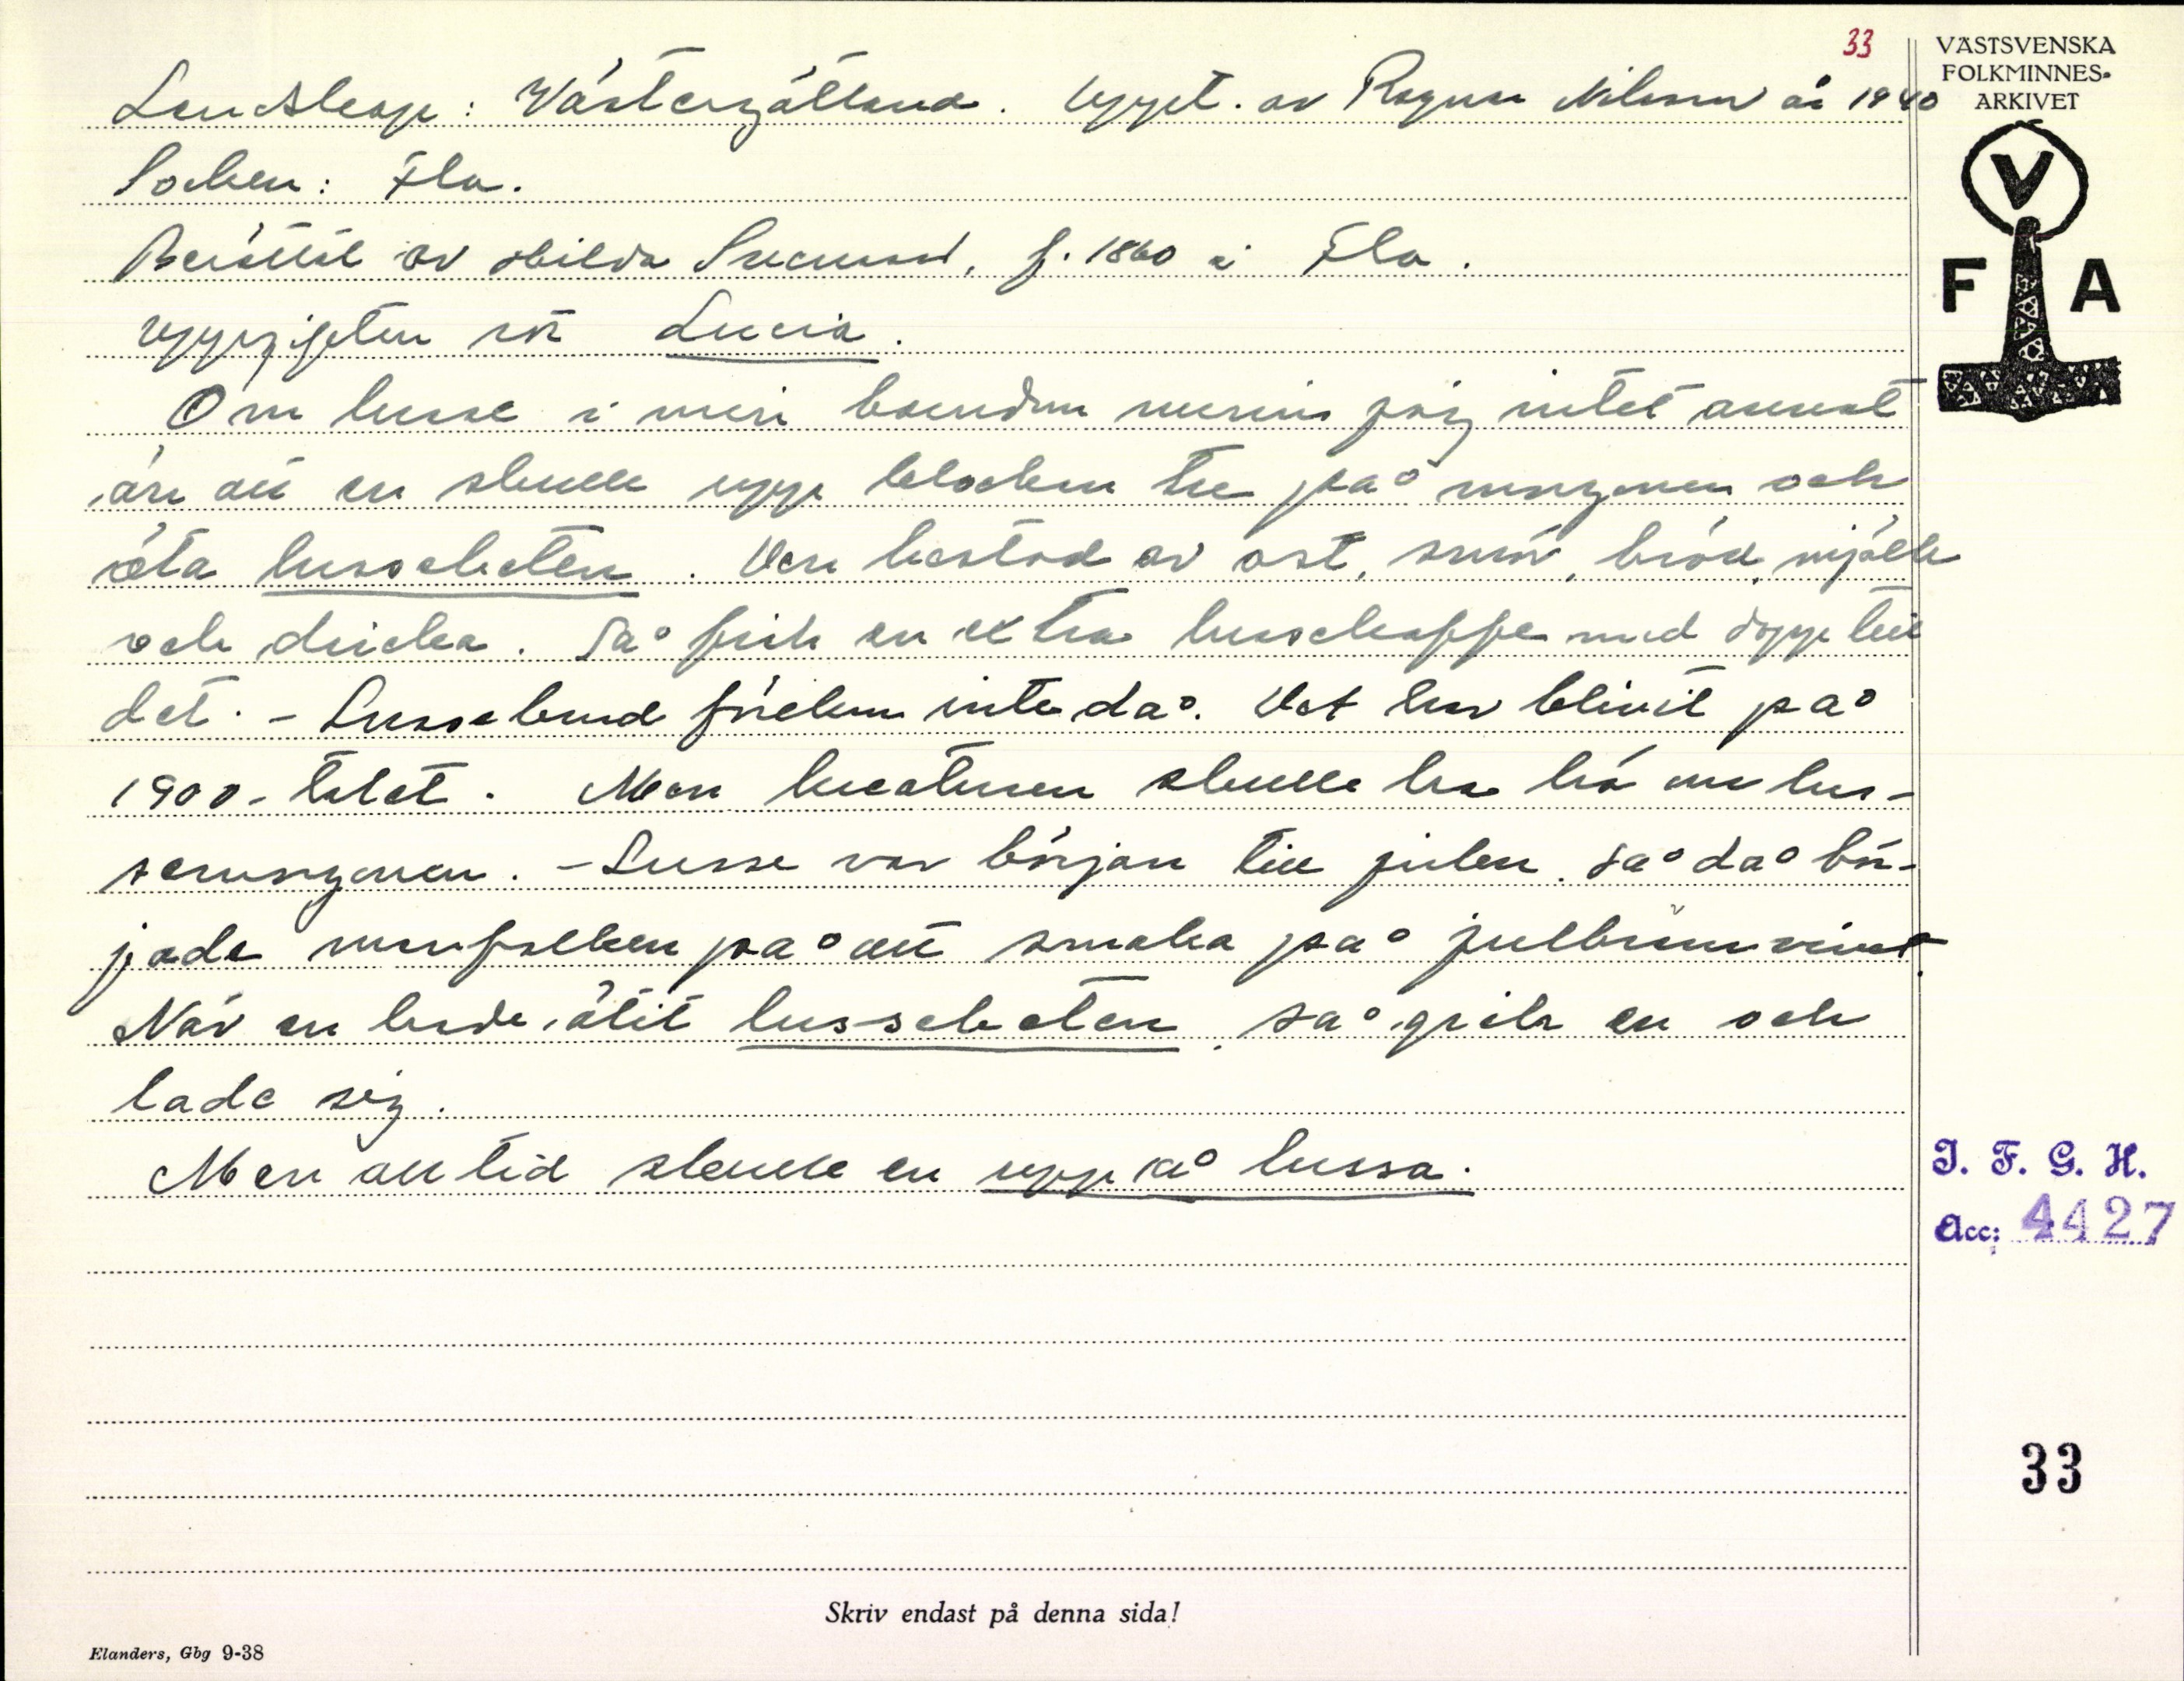 33
VÄSTSVENSKA
FOLKMINNES-
ARKIVET
V
F A
Landskap: Västergötland. Uppt. av Ragnar Nilsson år 1940
Socken: Fla.
Berättat av Hilda Svensson, f. 1860 i Fla.
uppgiften rör Lucia.
Om lusse i min barndom minns jag intet annat
än att en skulle upp klockan tre på morgonen och
äta lussebeten. Den bestod av ost, smör, bröd, mjölk
och dricka. Så fick en extra lussekaffe med dopp till
det. - Lussebrud förekom inte då. Det har blivit på
1900-talet. Men kreaturen skulle ha hö om lus-
semorgonen. - Lusse var början till julen. Så då bör-
jade manfolken på att smaka på julbrännvinet.
När en hade ätit lussebeten, så gick en och
lade sig.
Men alltid skulle en upp å lussa.
I. F. G. H.
Acc: 4427
33
Skriv endast på denna sida!
Elanders, Gbg 9-38